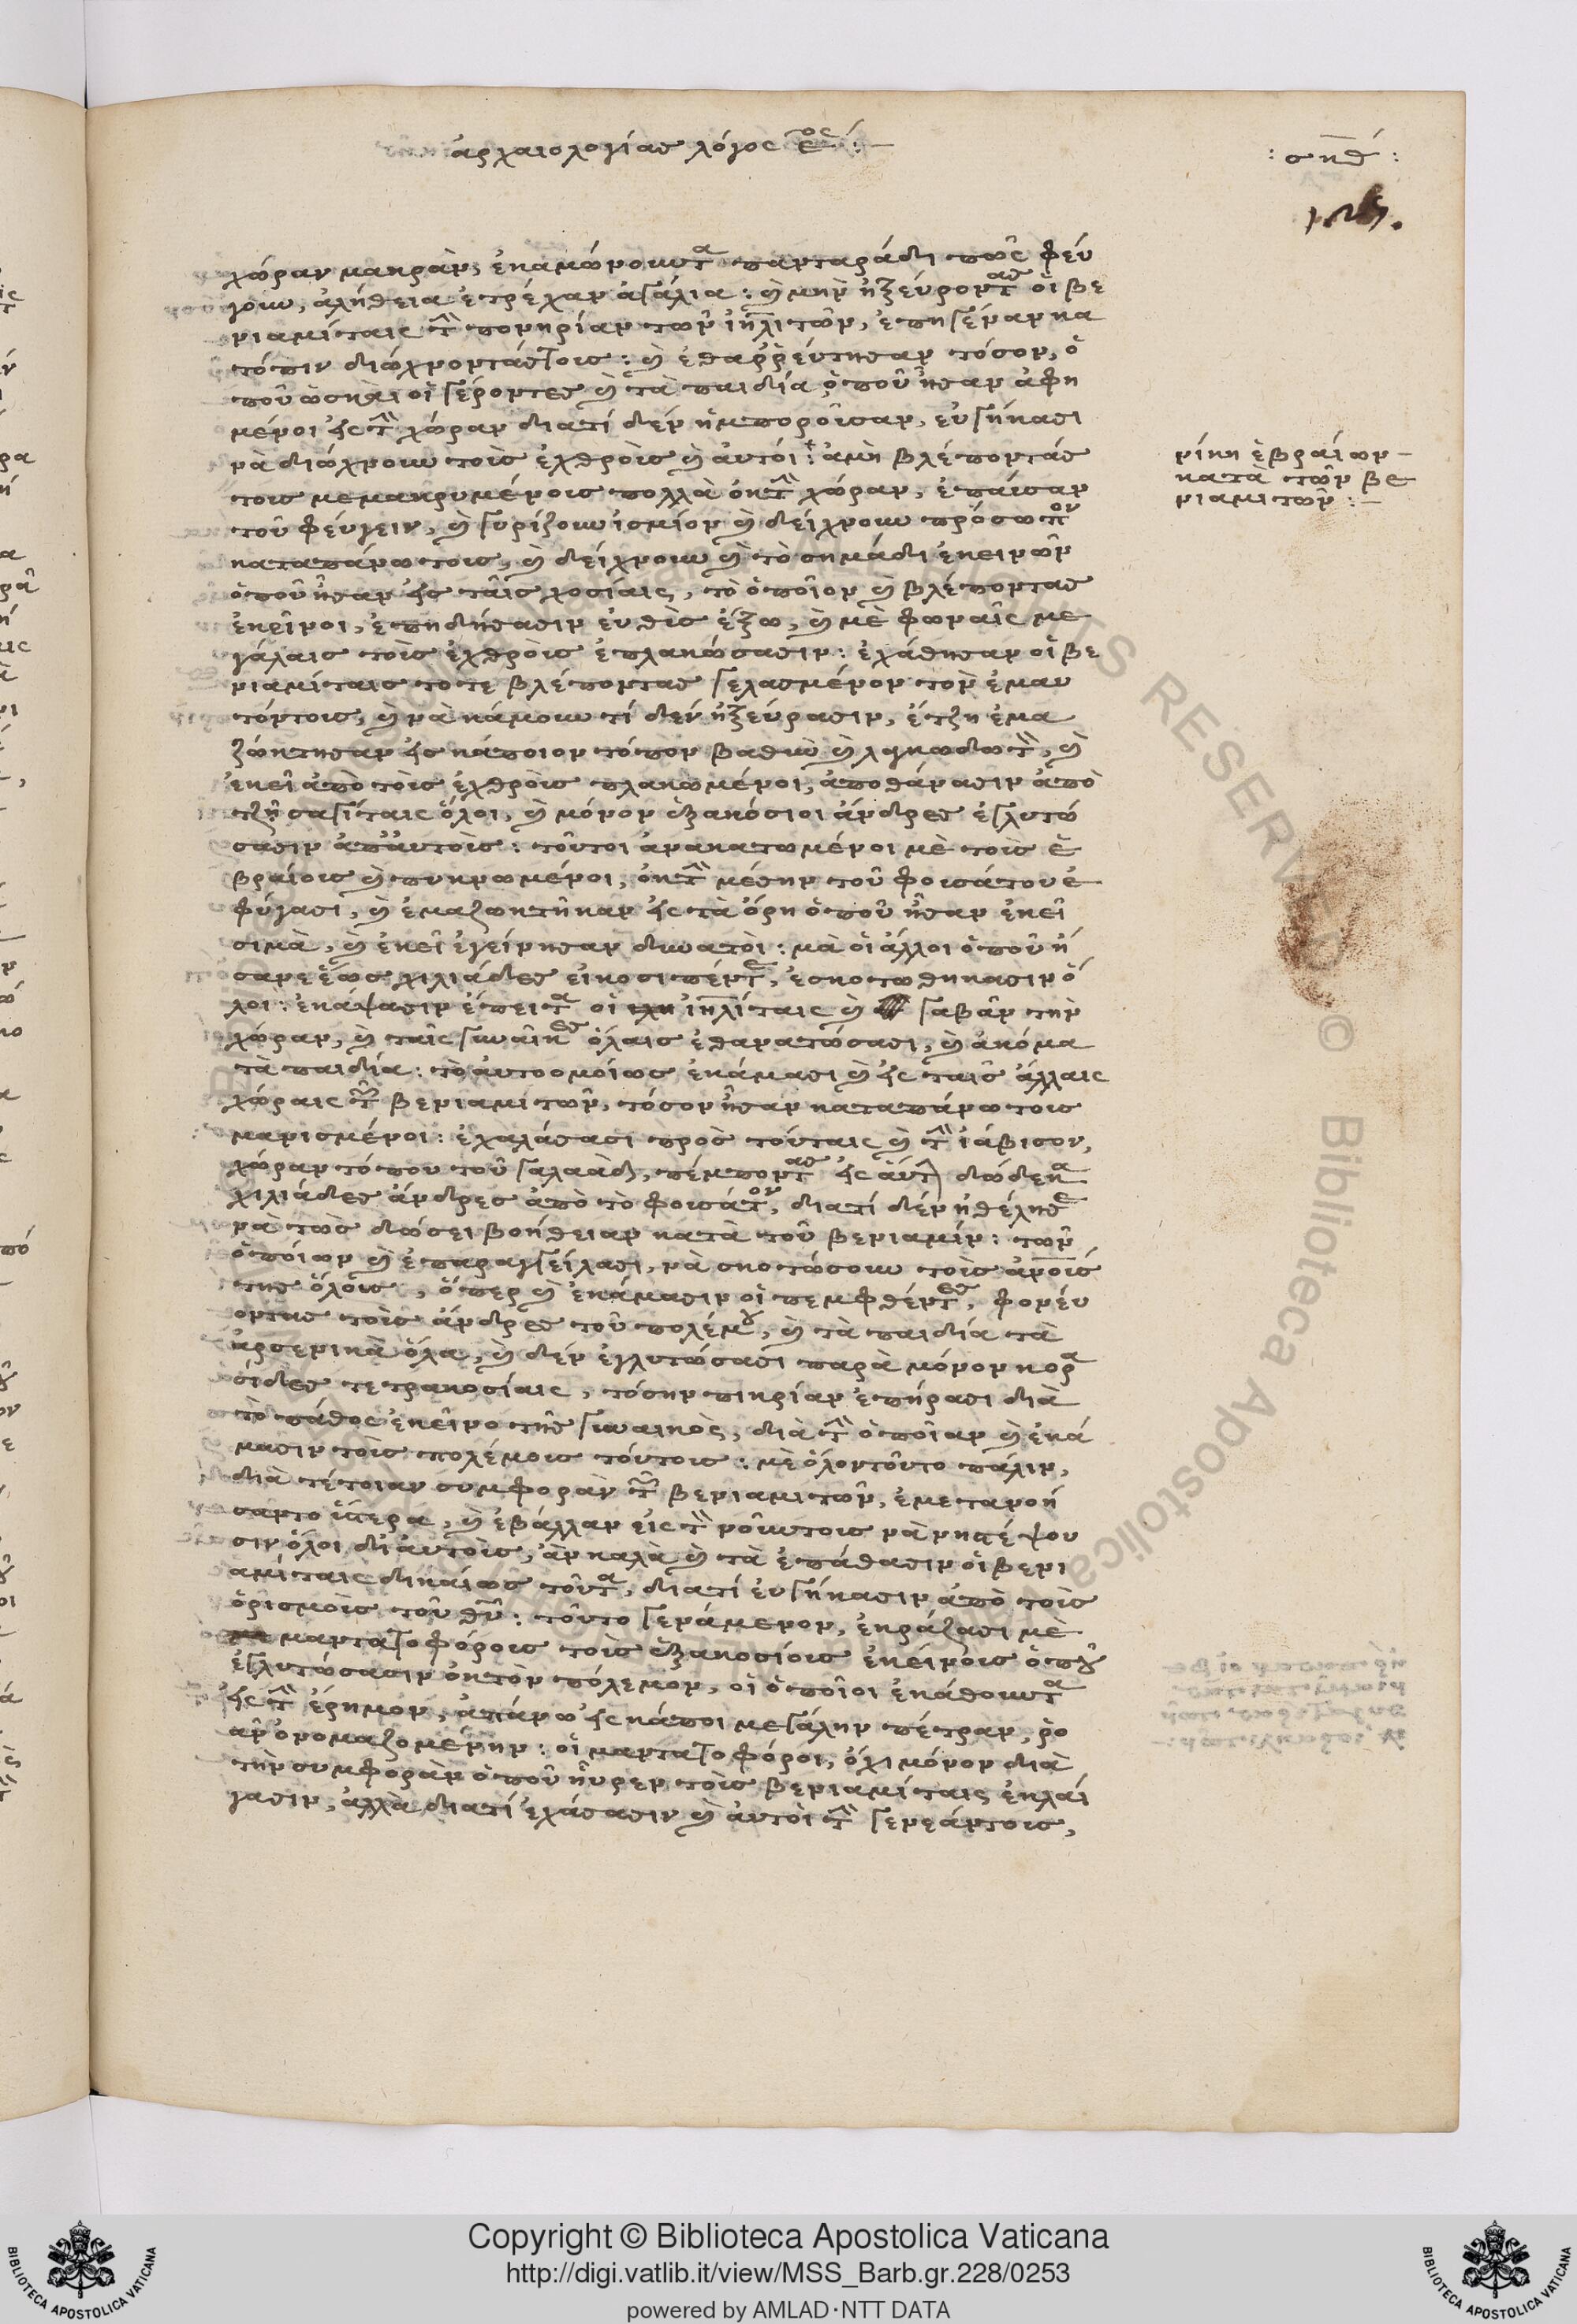 ἀρχαιολογίας λόγος εος :—
: σηθ :
χώραν μακρὰν, ἐκαμώνουντα πανταράδι πῶς φεύ
γουν, ἀλήθεια ἐτρέχαν ἀγάλια : καὶ μὴν ἠξεύροντας οἱ βε
νιαμίταις τὴν πονηρίαν τῶν ἰηλιτῶν, ἐπηγέναν κα
τόπιν διώχνοντάς τοις : καὶ ἐθαῤῥεύτησαν τόσον, ὁ
ποῦ ὡσκαὶ οἱ γέροντες καὶ τὰ παιδία ὁποῦ ἦσαν ἀφη
μένοι εἰς τὴν χώραν διατί δὲν ἠμποροῦσαν, εὐγήκασι
νὰ διώχνουν τοὶς ἐχθροὶς καὶ αὐτοί : ἀμὴ βλέποντάς
τοις μεμακρυμένοις πολλὰ ὀκτὴν χώραν, ἐπαύσαν
τοῦ φεύγειν, καὶ γυρίζουν ἰσμίον καὶ δείχνουν πρόσωπον
καταπάνω τοις, καὶ δείχνουν καὶ τὸ σημάδι ἐκεινῶν
ὁποῦ ἦσαν εἰς ταῖς χοσίαις, τὸ ὁποῖον καὶ βλέποντας
ἐκεῖνοι, ἐπηδήσασιν εὐθὶς ἔξω, καὶ μὲ φωναῖς με
γάλαις τοὶς ἐχθροὶς ἐπλακώσασιν : ἐχάθησαν οἱ βε
νιαμίταις τότε βλέποντας γελασμένον τὸν ἐμαυ
τόντοις, καὶ νὰ κάμουν τί δὲν ἠξεύρασιν, ἔτζη ἐμα
ζώκτησαν εἰς κάποιον τόπον βαθιὺ καὶ λακκωδωτὸν, καὶ
ἐκεῖ ἀπὸ τοὶς ἐχθροὶς πλακωμένοι, ἀποθάνασιν ἀπὸ
τζῆ σαγίταις ὅλοι, καὶ μόνον ἑξακόσιοι ἄνδρες ἐγλυτώ
σασιν ἀπ' αὐτοὶς : τοῦτοι ἀνακατωμένοι μὲ τοὶς ἑ
βραίοις καὶ πυκνωμένοι, ὀκτὴν μέσην τοῦ φουσάτου ἐ
φύγασί, καὶ ἐμαζωκτῆκαν εἰς τὰ ὄρη ὁποῦ ἦσαν ἐκεῖ
σιμὰ, καὶ ἐκεῖ ἐγείρησαν δυνατοὶ : μὰ οἱ ἄλλοι ὁποῦ ἤ
σανε ἕως χιλιάδες εἰκοσιπέντε, ἐσκοτωθηκασιν ὅ
λοι : ἐκάψασιν ἔπειτα οἱ ἰηλίταις καὶ γαβὰν τὴν
χώραν, καὶ ταῖς γυναῖκες ὅλαις ἐθανατώσασι, καὶ ἀκόμα
τὰ παιδία : τὸ αὐτοομοίως ἐκάμασι καὶ εἰς ταῖς ἄλλαις
χώραις τῶν βενιαμιτῶν, τόσον ἦσαν καταπάνω τοις
μανισμένοι : ἐχαλάσασι πρὸς τούταις καὶ τὴν ἰάβισον,
χώραν τόπου τοῦ γαλαὰδ, πέμποντας εἰς αὐτὴν δώδεκα
χιλιάδες ἄνδρες ἀπὸ τὸ φουσάτον, διατί δὲν ἠθέλησε
νὰ τὼς δώσει βοήθειαν κατὰ τοῦ βενιαμίν : τῶν
ὁποίων καὶ ἐπαραγγείλασι, νὰ σκοτώσουν τοὶς ἀνοὶς
της ὅλοις, ὅπερ καὶ ἐκάμασιν οἱ πεμφθέντες, φονεύ
οντης τοὶς ἄνδρες τοῦ πολέμου, καὶ τὰ παιδία τὰ
ἀρσενικὰ ὅλα, καὶ δὲν ἐγλυτώσασι παρὰ μόνον κορα
σίδες τετρακοσίαις, τόσην πικρίαν ἐπήρασι διὰ
τὸ πάθος ἐκεῖνο τῆς γυναικὸς, διὰ τὴν ὁποῖαν καὶ ἐκά
μασιν τοὶς πολέμοις τούτοις : μὲ ὅλοντοῦτο πάλιν,
διὰ τέτοιαν συμφορὰν τῶν βενιαμιτῶν, ἐμετανοή
σαντο ὕστερα, καὶ ἐβάλλαν εἰς τὸν νοῦν τοις νὰ νηστέψου
σιν ὅλοι δι' αὐτοὶς, ἂν καλὰ καὶ τὰ ἐπάθασιν οἱ βενι
αμίταις δικαίως τοῦτα, διατί εὐγήκασιν ἀπὸ τοὶς
ὁρισμοὶς τοῦ θῦ : τοῦτο γενάμενον, ἐκράζασι μὲ
μαντατοφόροις τοὶς ἑξακοσίοις ἐκείνοις ὁποῦ
ἐγλυτώσασιν ὀκτὸν πόλεμον, οἱ ὁποῖοι ἐκάθουντα
εἰς τὴν ἔρημον, ἀπάνω εἰς κάποι μεγάλην πέτραν, ῥο
ὰν ὀνομαζομένην : οἱ μαντατοφόροι, ὄχι μόνον διὰ
τὴν συμφορὰν ὁποῦ ηὗρεν τοὶς βενιαμίταις ἐκλαί
γασιν, ἀλλὰ διατί ἐχάσασιν καὶ αὐτοὶ τὴν γενεάντοις,
νίκη ἑβραίων
κατὰ τῶν βε
νιαμιτῶν :—
Copyright © Biblioteca Apostolica Vaticana
http://digi.vatlib.it/view/MSS_Barb.gr.228/0253
powered by AMLAD·NTT DATA
BIBLIOTECA APOSTOLICA VATICANA
BIBLIOTECA APOSTOLICA VATICANA